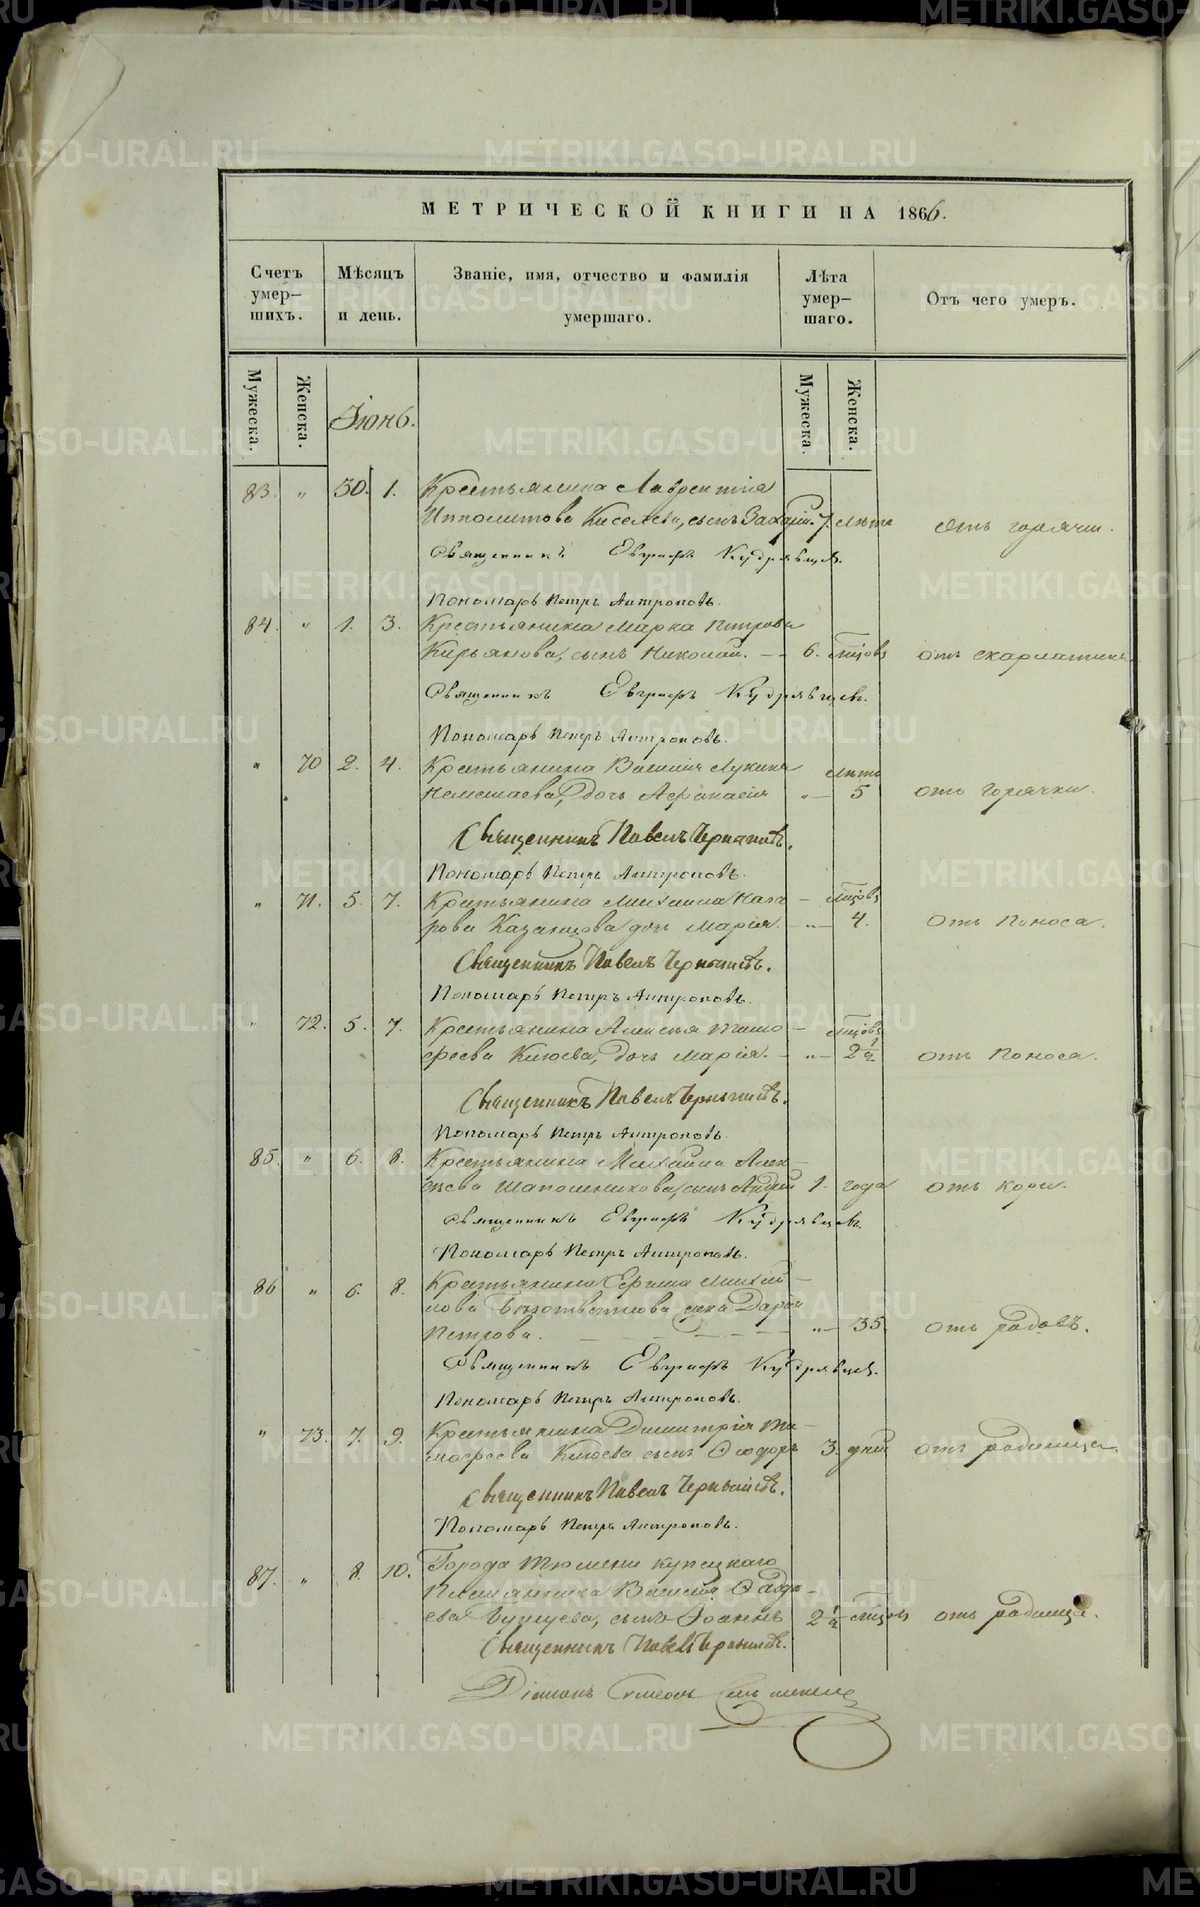 МЕТРИЧЕСКОЙ КНИГИ НА 1866.
Счетъ умер-шихъ.
Мѣсяцъ и день.
Званіе, имя, отчество и фамилія умершаго.
Лѣта умер-шаго.
Отъ чего умеръ.
Мужеска.
Женска.
Іюнь.
Мужеска.
Женска.
83. " 30. 1. Крестьянина Лаврентія
Ипполитова Киселева, сынъ Захарій. 7. лѣтъ отъ горячки.
Священникъ Евграфъ Кудрявцев.
Пономарь Петръ Антроповъ.
84. " 1. 3. Крестьянина Марка Петрова
Кирьянова, сынъ Николай. — 6. мѣсяцовъ отъ скарлатины
Священникъ Евграфъ Кудрявцевъ.
Пономарь Петръ Антроповъ.
" 70 2. 4. Крестьянина Василія Лукина лѣтъ
дочь Афанасія " 5 отъ горячки.
Священникъ Павелъ Чернышевъ.
Пономарь Петръ Антроповъ.
" 71. 5. 7. Крестьянина Михаила Наза — мѣсяцовъ
рова Казанцова дочь Марія. " 4. отъ поноса.
Священникъ Павелъ Чернышевъ.
Пономарь Петръ Антроповъ.
" 72. 5. 7. Крестьянина Алексѣя Тимо — мѣсяцовъ
феева Клюева, дочь Марія. — " 2½ отъ поноса.
Священникъ Павелъ Чернышевъ.
Пономарь Петръ Антроповъ.
85. " 6. 8. Крестьянина Михаила Алек—
сѣева Шапошникова, сынъ Андрей 1. года отъ кори.
Священникъ Евграфъ Кудрявцевъ.
Пономарь Петръ Антроповъ.
86 " 6. 8. Крестьянина Ефима Михай—
лова жена Дарья
Петрова. — " — 35. отъ родовъ.
Священникъ Евграфъ Кудрявцев.
Пономарь Петръ Антроповъ.
" 73. 7. 9. Крестьянина Димитрія Ти—
мофеева Клюева сынъ Ѳеодоръ 3. дней отъ родимца
Священникъ Павелъ Чернышевъ.
Пономарь Петръ Антроповъ.
87. " 8. 10. Города Тюмени купецкаго
племянника Василія Ѳадѣ—
ева сынъ Іоаннъ 2½ мѣсяцовъ отъ родимца.
Священникъ Павелъ Чернышевъ.
Діаконъ Симеонъ
METRIKI.GASO-URAL.RU